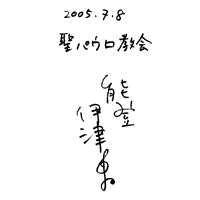 2005.7.8
聖パウロ教会
能登
伊津